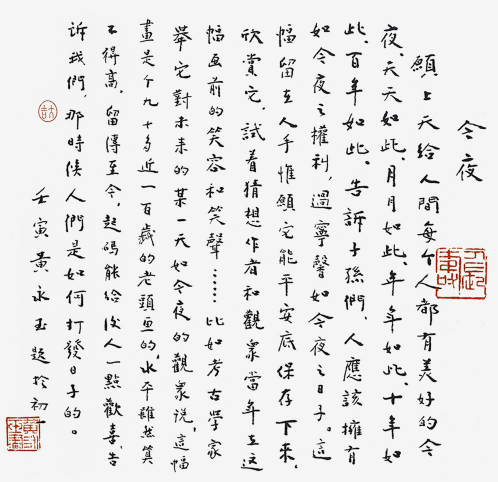 今夜
願上天給人間每个人都有美好的今
夜。天天如此、月月如此、年年如此、十年如
此、百年如此。告訴子孫們，人應該擁有
如今夜之權利，過寧馨如今夜之日子。這
幅留在人手惟願它能平安底保存下來，
欣賞它，試着猜想作者和觀衆當年在這
幅画前的笑容和笑聲……比如考古學家
舉它對未來的某一天如今夜的觀衆說，這幅
畫是个九十多近一百歲的老頭画的，水平雖然算
不得高，留傳至今，起碼能給後人一點歡喜，告
訴我們，那時候人們是如何打發日子的。
壬寅黃永玉題於初一